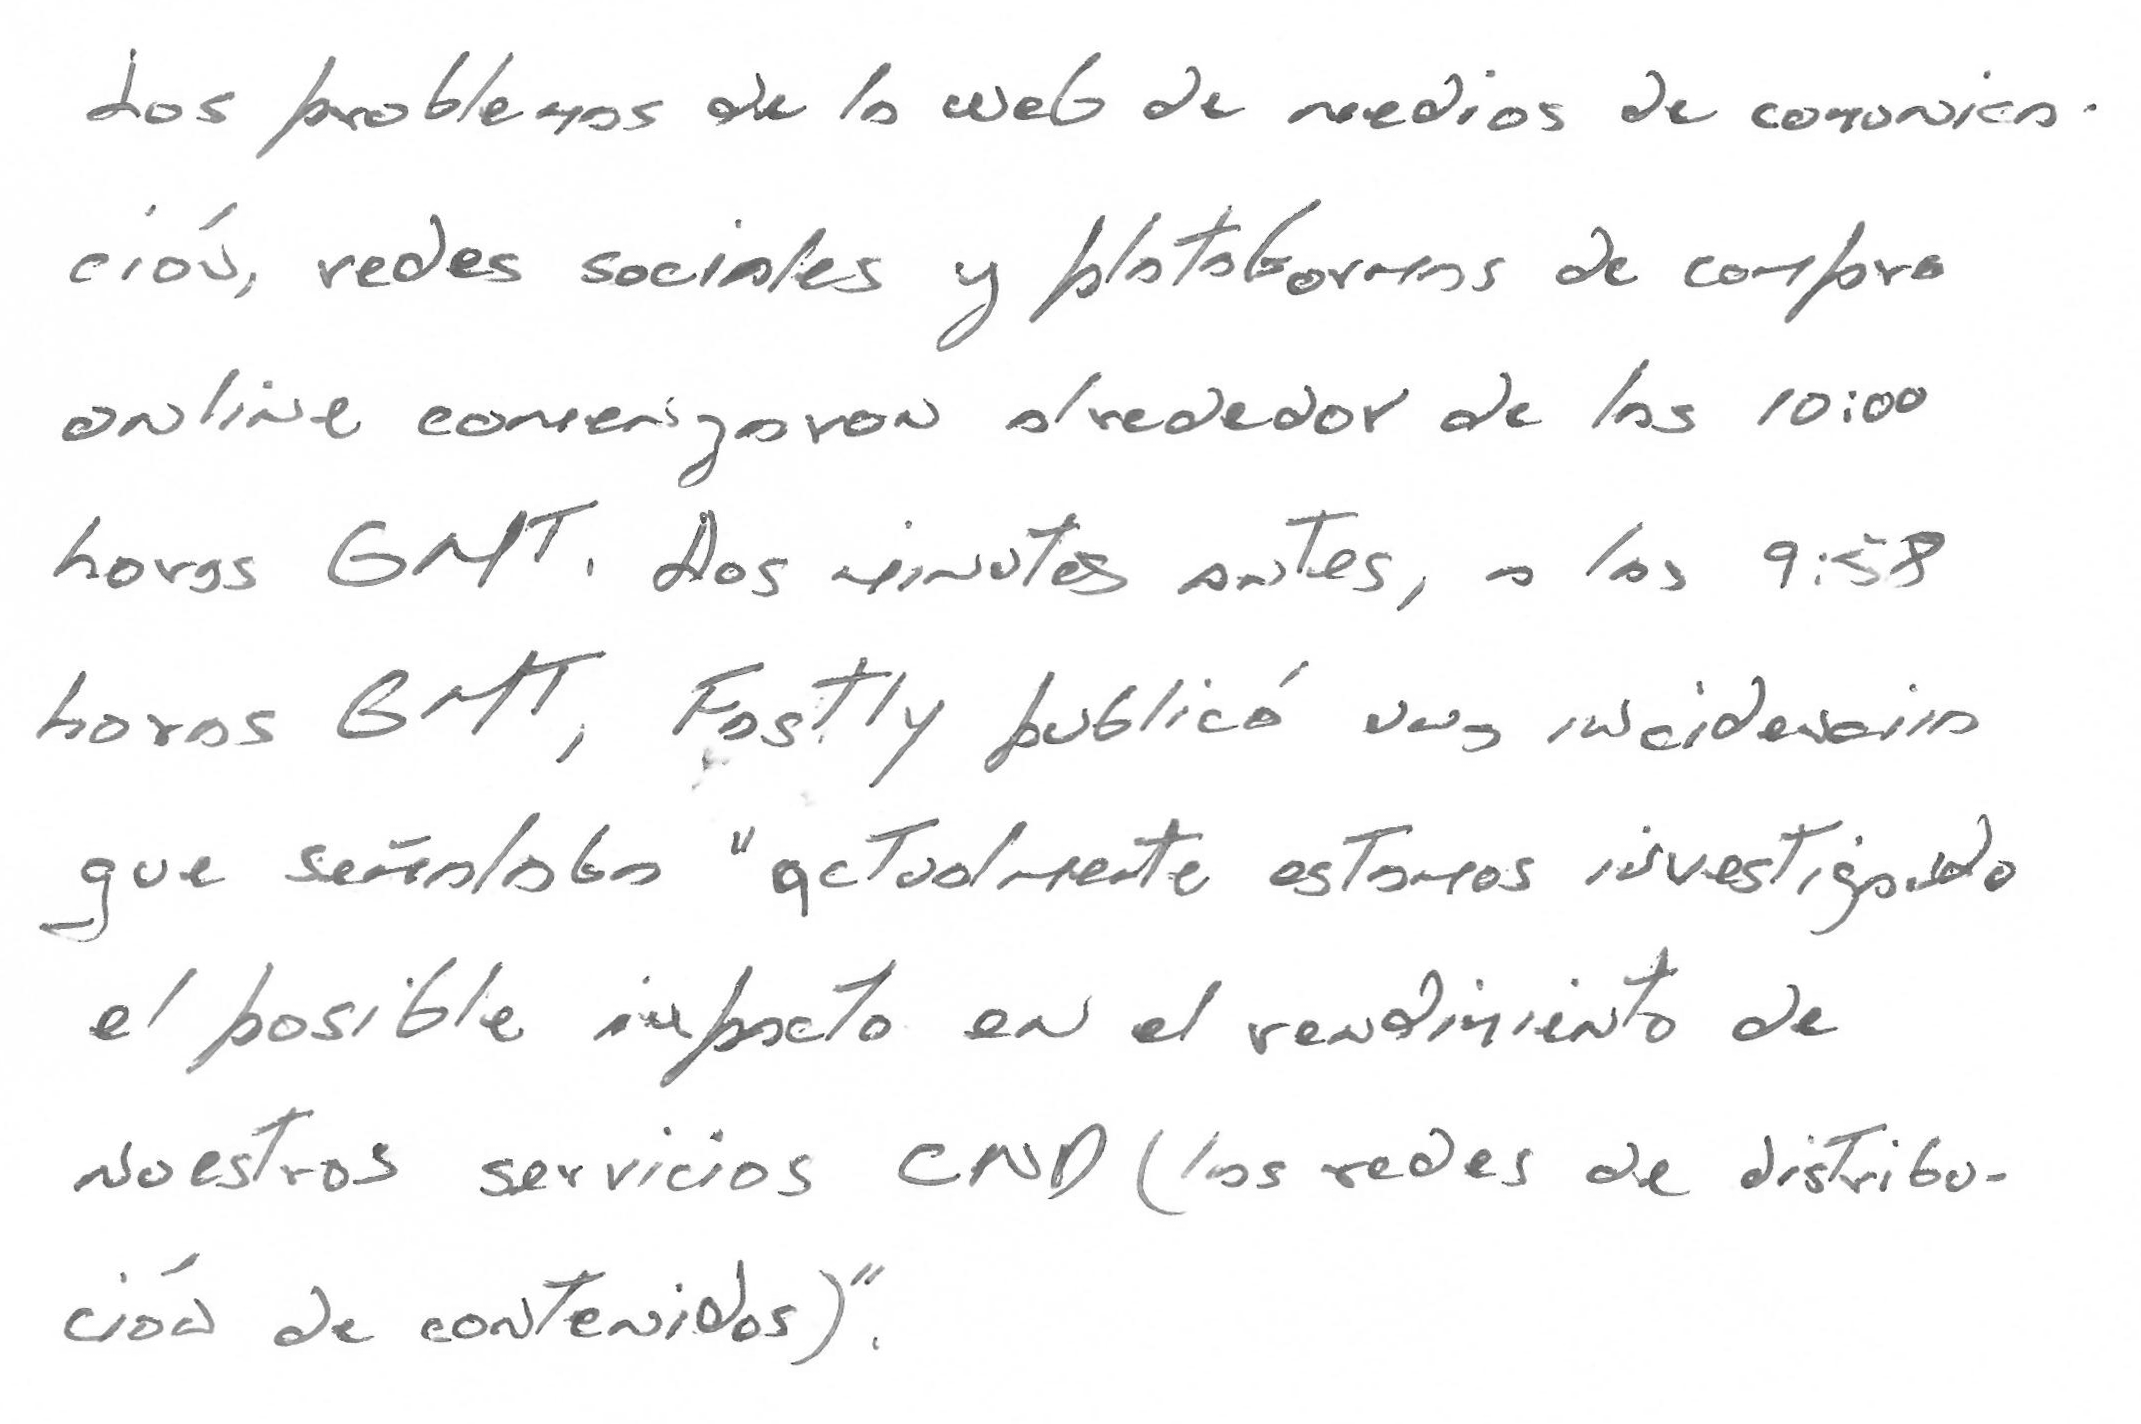 Los problemas de la web de medios de comunica-
ción, redes sociales y plataformas de compra
online comenzaron alrededor de las 10:00
horas GMT. Dos minutos antes, a las 9:58
horas GMT, Fastly publicó una incidencia
que señalaba "actualmente estamos investigando
el posible impacto en el rendimiento de
nuestros servicios CND (las redes de distribu-
ción de contenidos)".